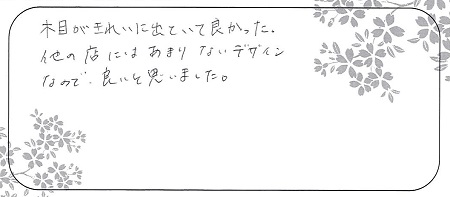 木目がきれいに出ていて良かった。
他の店にはあまりないデザイン
なので、良いと思いました。